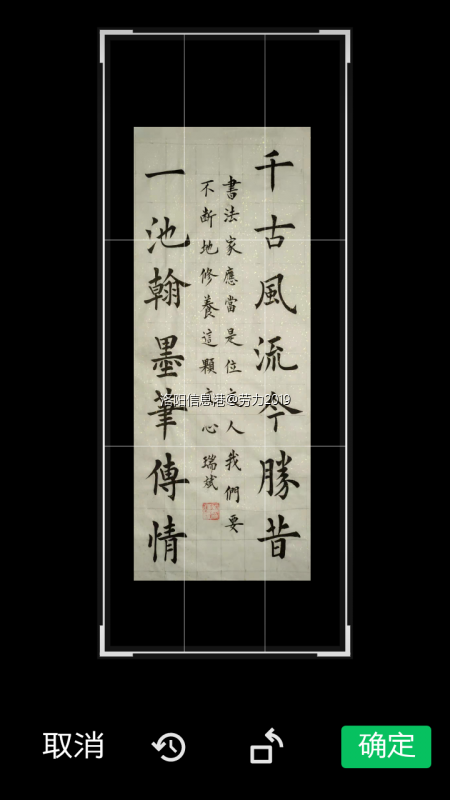 千古風流今勝昔
書法家應當是位文人我們要
不断地修養這顆文心 瑞斌
一池翰墨筆傳情
洛阳信息港@劳力2019
取消
确定